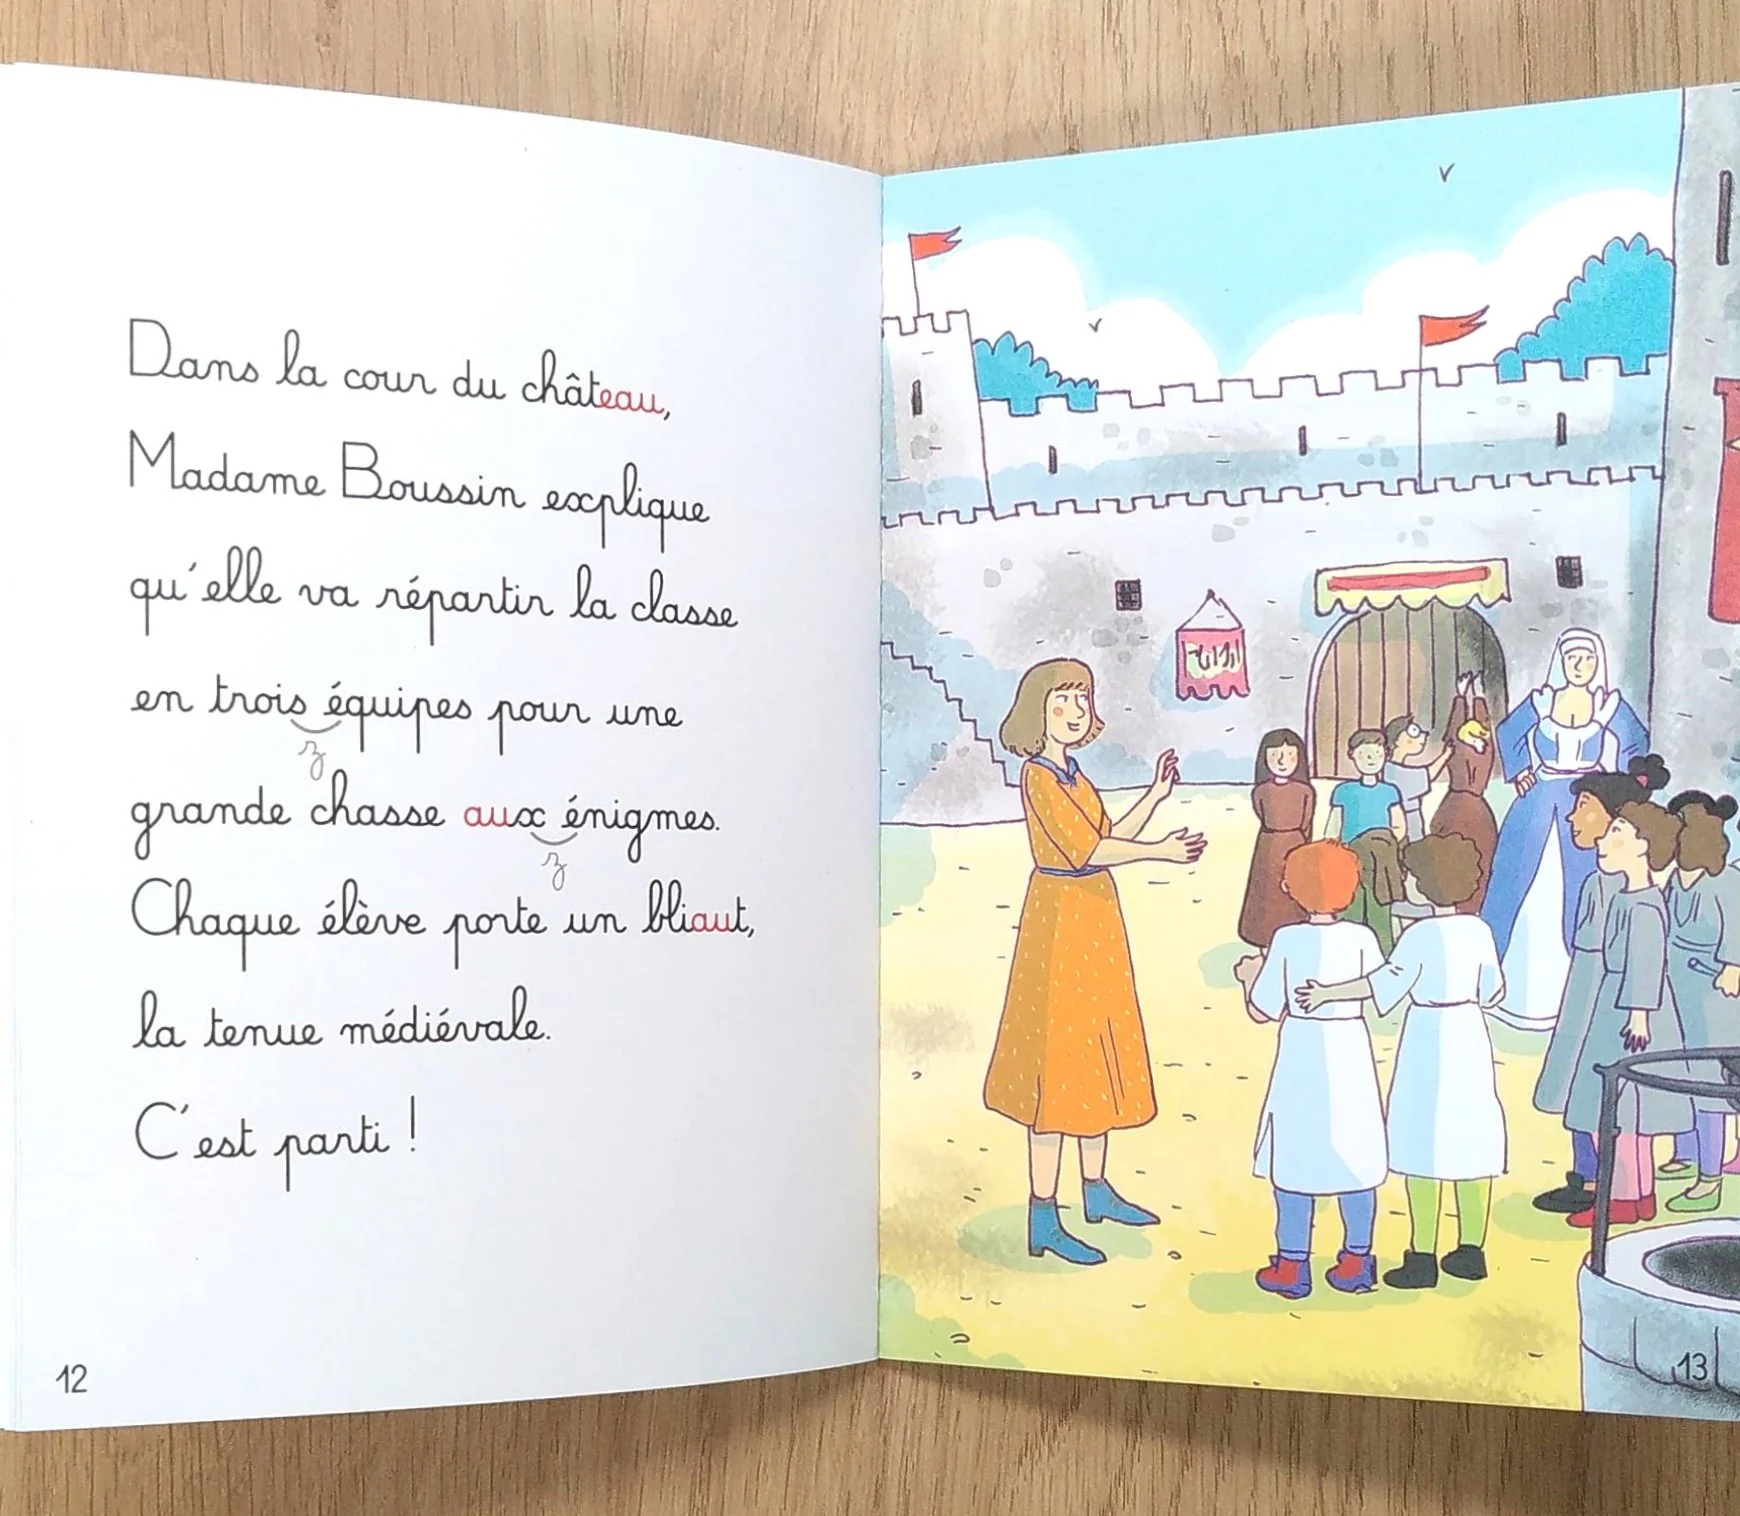 Dans la cour du château,
Madame Boussin explique
qu'elle va répartir la classe
en trois équipes pour une
z
grande chasse aux énigmes.
z
Chaque élève porte un bliaut,
la tenue médiévale.
C'est parti !
12
13